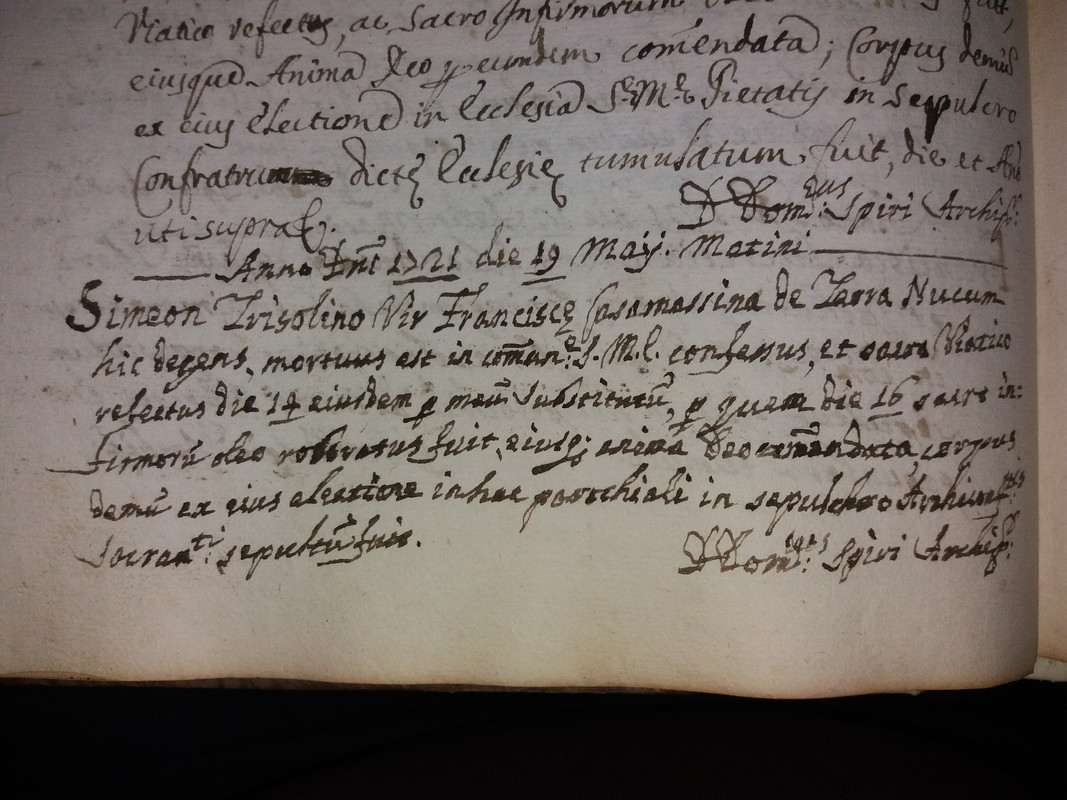 Viatico refectus, ac Sacro Infirmorum fuit,
eiusque Anima Deo p eundem comendata; Corpus demũ
ex eius electione in Ecclesia S. M. Pietatis in Sepulcro
Confratrum dictę Ecclesię tumulatum fuit, die et
uti supra.
D Dom.cus Spiri Archip.
Anno Dni 1721 die 19 Maij. Matini
Simeon Trisolino Vir Franciscę Spamassina de Terra Nucum
hic degens, mortuus est in coman.e S. M. E. confessus, et sacro Viatico
refectus die 14 eiusdem p meũ Substitutũ, p quem die 16 sacro in:
firmorũ oleo roboratus fuit, eiusq; anima Deo comendata, corpus
demũ ex eius electione in hac parochiali in sepulchro
Sacram.ti sepultũ fuit.
D Dom.cus Spiri Archip.